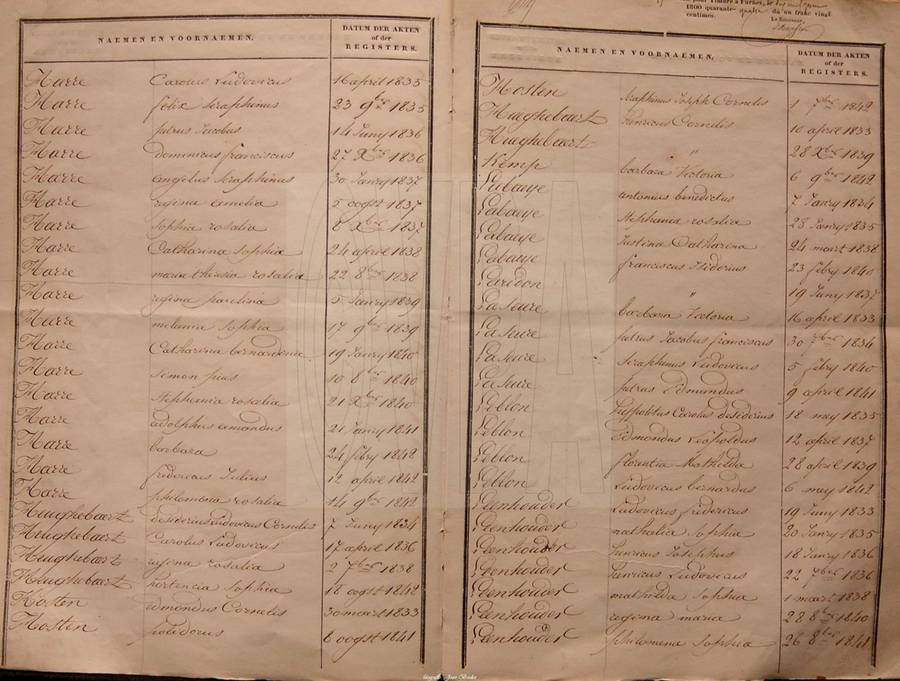 NAEMEN EN VOORNAEMEN.
DATUM DER AKTEN
of der
REGISTERS.
Harre Carolus Ludovicus 16 april 1835
Harre felix Seraphinus 23 9bre 1835
Harre petrus Jacobus 14 Juny 1836
Harre Domenicus franciscus 27 Xbre 1836
Harre angelus Seraphinus 30 Janry 1837
Harre regina amelia 5 oogst 1837
Harre Sophia rosalia 8 Xbre 1837
Harre Catharina Sophia 24 april 1838
Harre maria theresia rosalia 22 8bre 1838
Harre regina paulina 5 Janry 1839
Harre melania Sophia 17 9bre 1839
Harre Catharina bernardina 19 Janry 1840
Harre Simon pius 10 8bre 1840
Harre Stephania rosalia 21 Xbre 1840
Harre adolphus amandus 21 Janry 1841
Harre barbara 24 febry 1842
Harre fridericus Julius 12 april 1842
Harre philomena rosalia 14 9bre 1842
Heughebaert desiderius Ludovicus Cornelis 7 Juny 1834
Heughebaert Carolus Ludovicus 17 april 1836
Heughebaert eugena rosalia 2 7bre 1838
Heughebaert hortencia Sophia 18 oogst 1842
Hosten edmondus Cornelis 30 maart 1833
Hosten polidorus 8 oogst 1841
Timbre à Furnes, le
1800 quarante quatre du un franc vingt
centimes.
Le Receveur,
NAEMEN EN VOORNAEMEN.
DATUM DER AKTEN
of der
REGISTERS.
Hosten Seraphinus Joseph Cornelis 1 7bre 1842
Hughebaert Henricus Cornelis 10 april 1833
Hughebaert " 28 Xbre 1839
Kemp barbara Victoria 6 9bre 1842
Labaeye antonius benedictus 7 Janry 1834
Labaeye Stephania rosalia 28 Janry 1835
Labaeye Justina Catharina 24 maart 1838
Labaeye franciscus Isidorius 23 febry 1840
Laridon " 19 Juny 1837
La Seure barbara Victoria 16 april 1833
La Seure petrus Jacobus franciscus 30 7bre 1834
La Seure Seraphinus Ludovicus 5 febry 1840
La Seure petrus Edmundus 9 april 1841
Leblon hippolitus Carolus desiderius 18 mey 1835
Leblon Edmondus Leopoldus 12 april 1837
Leblon florentia Mathilda 28 april 1839
Leblon Ludovicus bernardus 6 mey 1842
Leenhouder Ludovicus fridericus 19 Juny 1833
Leenhouder nathalia Sophia 20 Janry 1835
Leenhouder henricus Josephus 18 Janry 1836
Leenhouder henricus Ludovicus 22 7bre 1836
Leenhouder mathilda Sophia 1 maart 1838
Leenhouder regina maria 28 8bre 1840
Leenhouder philomena Sophia 26 8bre 1841